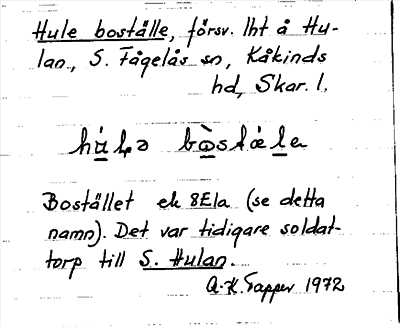 Hule boställe, försv. lht å Hu-
lan, S. Fågelås sn, Kåkinds
hd, Skar. l.
Bostället ek 8E1a (se detta
namn). Det var tidigare soldat-
torp till S. Hulan.
A.K. Tapper 1972